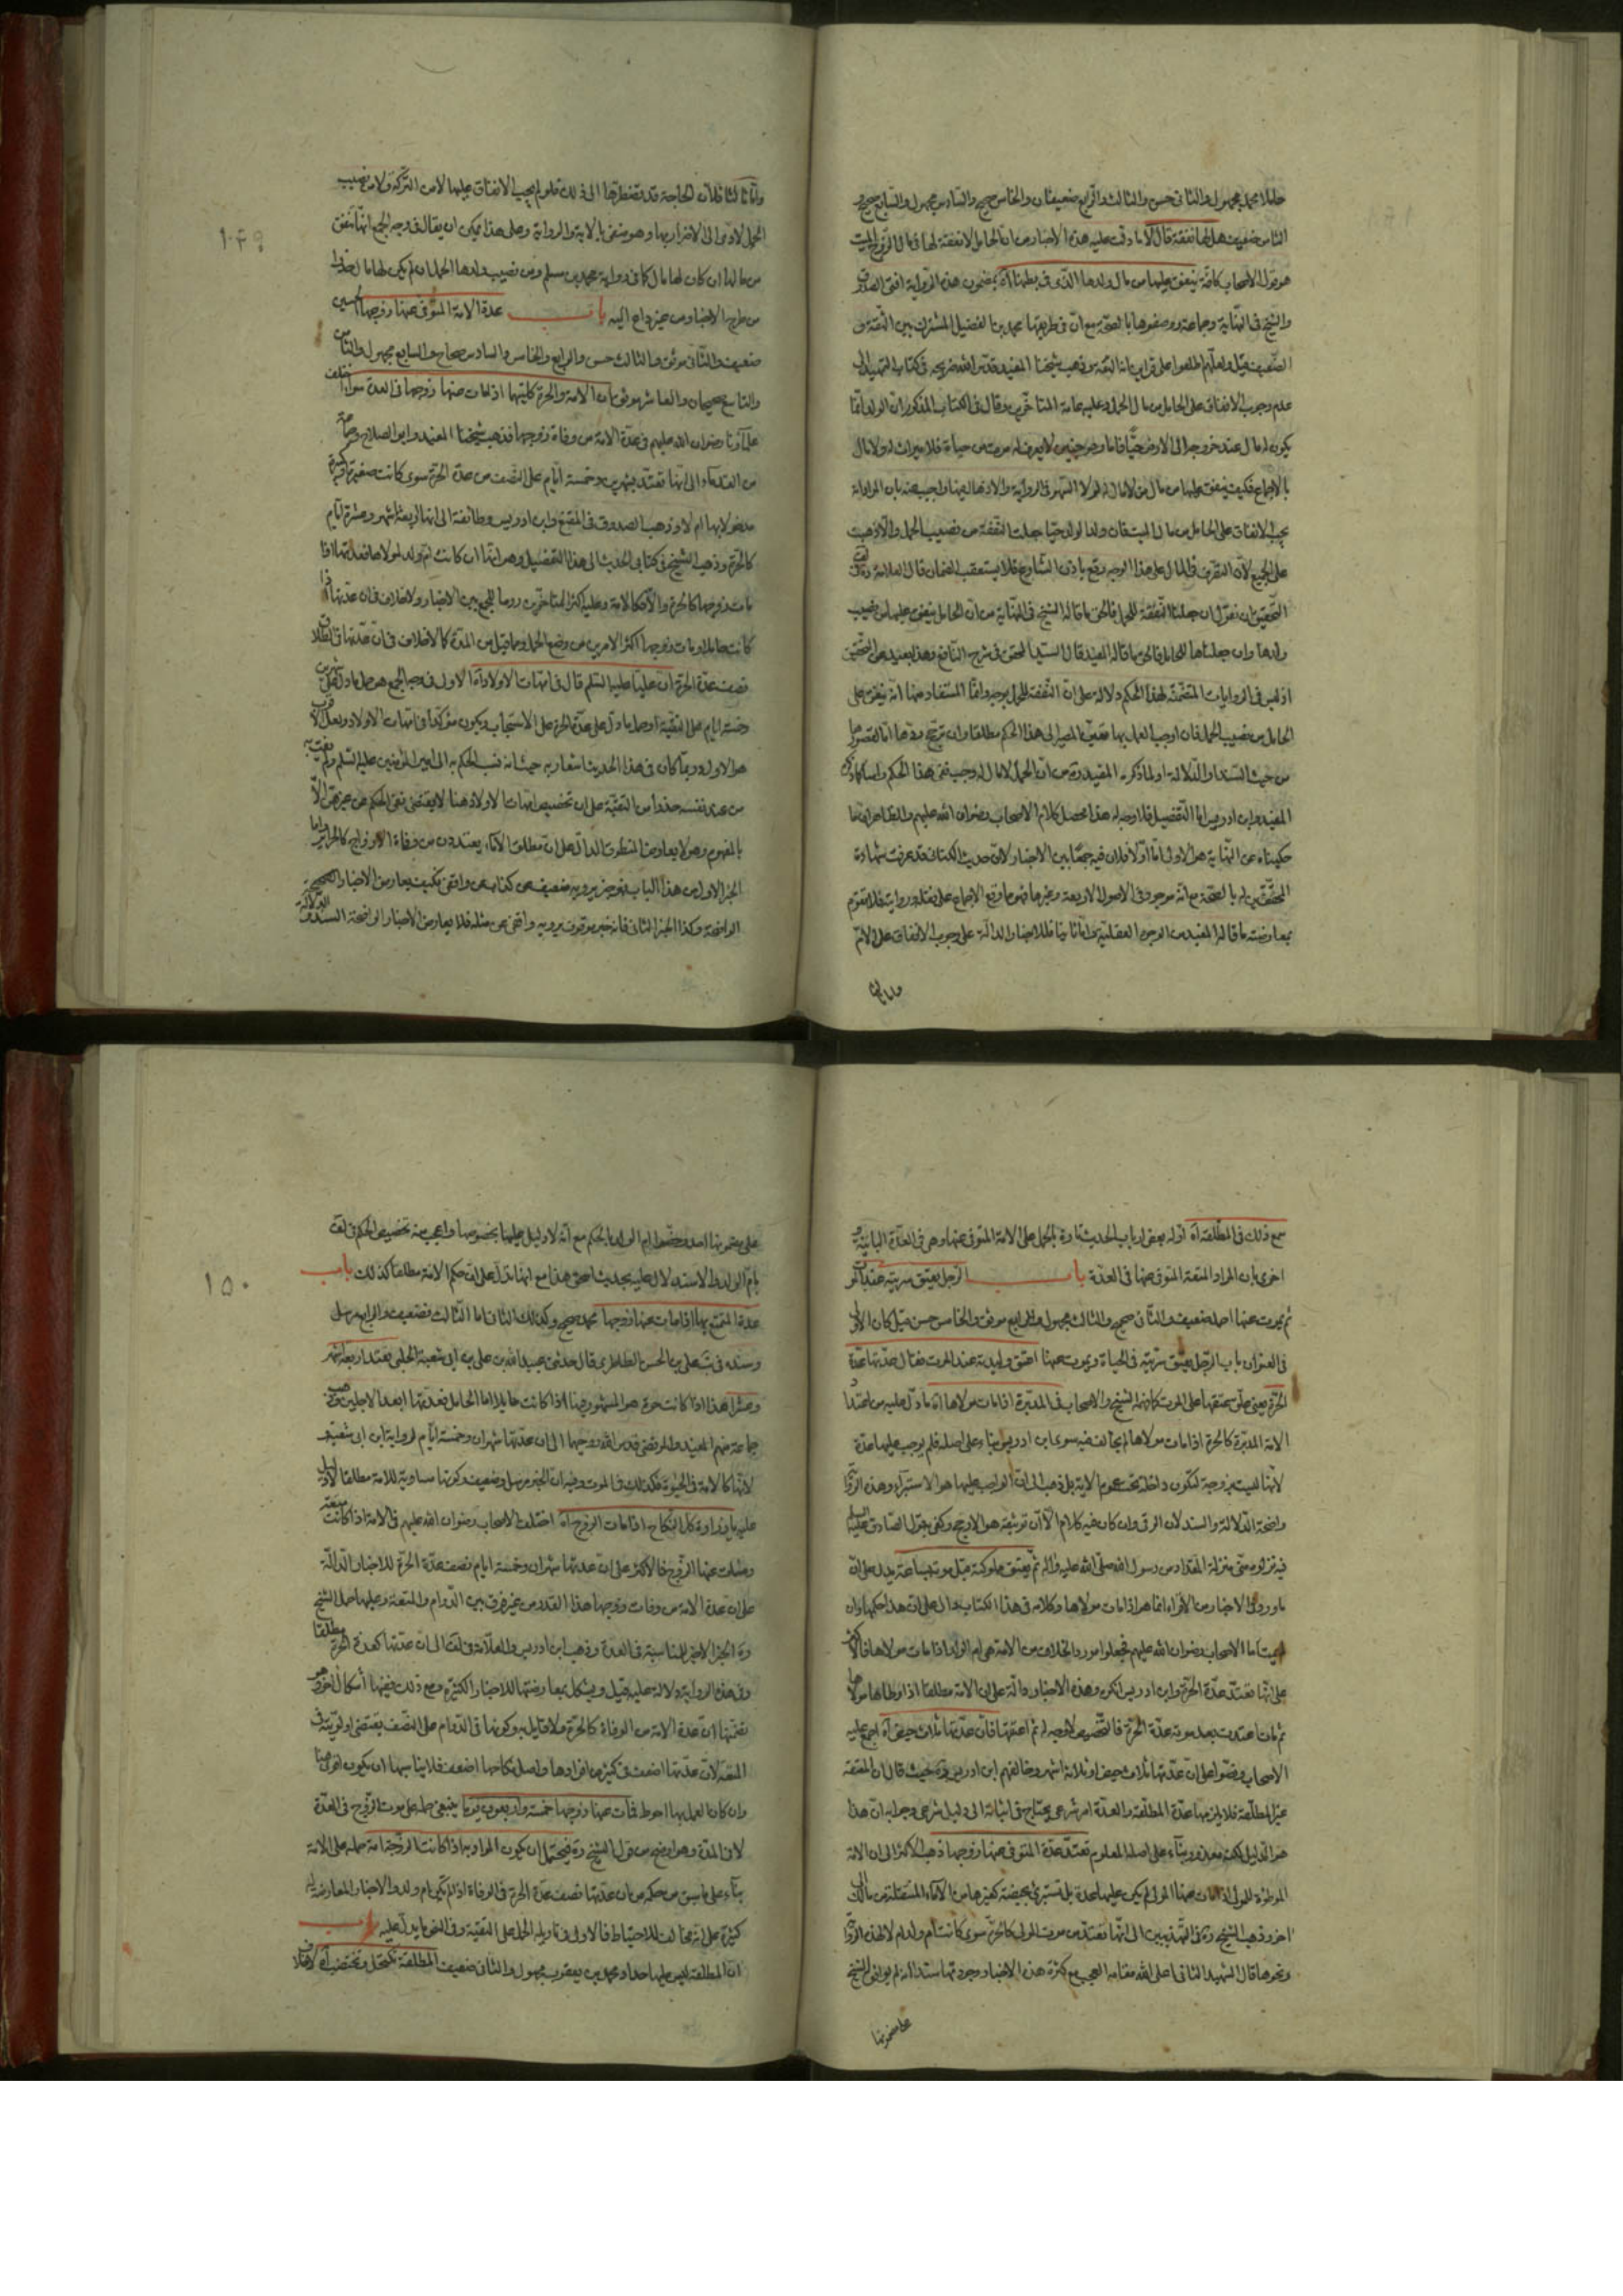 حاملا محمد مجهول والثاني حسن والثالث والرابع ضعيفان والخامس صحيح والسادس مجهول والسابع صحيح و
الثامن ضعيف هل لها نفقة قال لا ما دلت عليه هذه الاخبار من ان الحامل لا نفقة لها في مال الزوج الميت
هو قول الاصحاب كافة ينفق عليها من مال ولدها الذي في بطنها اه بمضمون هذه الرواية افتى الصدوق
والشيخ في النهاية وجماعة ووصفوها بالصحة مع ان في طريقها محمد بن الفضيل المشترك بين الثقة و
الضعيف قيل ولعلهم اطلعوا على قراين انه الثقة وذهب شيخنا المفيد قدس الله ضريحه في كتاب التمهيد الى
عدم وجوب الانفاق على الحامل من مال الحمل وعليه عامة المتاخرين وقال في الكتاب المذكور ان الولد انما
يكون له مال عند خروجه الى الارض حيا فاما وهو جنين لا يعرف له موت من حياة فلا ميراث له ولا مال
بالاجماع فكيف ينفق عليها من مال من لا مال له لولا السهو في الرواية والادهان فيها واجيب عنه بان المراد انه
يجب الانفاق على الحامل من مال الميت فان ولدا لولد حيا جعلت النفقة من نصيب الحمل والا ذهبت
على الجميع لان التصرف في المال على هذا الوجه وقع باذن الشارع فلا يستعقب الضمان قال العلامة ره في لف
التحقيق ان نقول ان جعلنا النفقة للحمل فالحق ما قاله الشيخ في النهاية من ان الحامل ينفق عليها من نصيب
ولدها وان جعلناها للحامل فالحق ما قاله المفيد قال السيد المحقق في شرح النافع وهذا بعيد عن التحقيق
اذ ليس في الروايات المتضمنة لهذا الحكم دلالة على ان النفقة للحمل بوجه وانما المستفاد منها انه ينفق على
الحامل من نصيب الحمل فان اوجب العمل بها تعين المصير الى هذا الحكم مطلقا وان ترجح ردها اما لقصورها
من حيث السند او الدلالة او لما ذكره المفيد ره من ان الحمل لا مال له وجب نفي هذا الحكم راسا كما ذكره
المفيد وابن ادريس اما التفصيل فلا وجه له هذا محصل كلام الاصحاب رضوان الله عليهم والظاهر ان ما
حكيناه عن النهاية هو الاولى اما اولا فلان فيه جمعا بين الاخبار لان حديث الكناني قد عرفت شهادة
المحققين له بالصحة مع انه موجود في الاصول الاربعة وغيرها فهو مما وقع الاجماع على نقله وروايته فلا يقوم
بمعارضته ما قاله المفيد من الوجوه العقلية واما ثانيا فللاخبار الدالة على وجوب الانفاق على الام
واما ثالثا
واما ثالثا فلان الحاجة قد تضطرها الى ذلك فلو لم يجب الانفاق عليها لا من التركة ولا من نصيب
الحمل لادى الى الاضرار بها وهو منفي بالاية والرواية وعلى هذا يمكن ان يقال في وجه الجمع انها تنفق
من مالها ان كان لها مال كما في رواية محمد بن مسلم ومن نصيب ولدها الحمل ان لم يكن لها مال حذرا
من طرح الاخبار ومن حيز دواع اليه باب عدة الامة المتوفى عنها زوجها الحسين
ضعيف والثاني موثق والثالث حسن والرابع والخامس والسادس صحاح والسابع مجهول والثامن
والتاسع صحيحان والعاشر موثق ان الامة والحرة كلتيهما اذا مات عنها زوجها في العدة سواء اختلف
علماؤنا رضوان الله عليهم في عدة الامة من وفاة زوجها فذهب شيخنا المفيد وابو الصلاح وجماعة
من القدماء الى انها تعتد بشهرين وخمسة ايام على النصف من عدة الحرة سوى كانت صغيرة او كبيرة
مدخولا بها ام لا وذهب الصدوق في المقنع وابن ادريس وطائفة الى انها اربعة اشهر وعشرة ايام
كالحرة وذهب الشيخ في كتابي الحديث الى هذا التفصيل وهو انها ان كانت ام ولد لمولاها فعدتها اذا
مات زوجها كالحرة والا فكالامة وعليه اكثر المتاخرين روما للجمع بين الاخبار ولا خلاف في ان عدتها اذا
كانت حاملا ومات زوجها اكثر الامرين من وضع الحمل وما قيل من المدة كما لا خلاف في ان عدتها في الطلاق
نصف عدة الحرة ان عليا عليه السلم قال في امهات الاولاد اه الاول في وجه الجمع هو حمل ما دل على شهرين
وخمسة ايام على التقية او حمل ما دل على عدة الحرة على الاستحباب ويكون مؤكدا في امهات الاولاد ولعل الاقرب
هو الاول وربما كان في هذا الحديث اشعار به حيث انه نسب الحكم به الى امير المؤمنين عليه السلم ولم يفت به
من عند نفسه حذرا من التقية على ان تخصيص امهات الاولاد هنا لا يقتضي نفي الحكم عن غيرهن الا
بالمفهوم وهو لا يعارض المنطوق الدال على ان مطلق الاماء يعتددن من وفاة الازواج كالحرائر واما
الخبر الاول من هذا الباب فهو خبر يرويه ضعيف عن كتاب عن واقفي فكيف يعارض الاخبار الصحيحة
الواضحة وكذا الخبر الثاني فانه خبر موثوق يرويه واقفي عن مثله فلا يعارض الاخبار الواضحة السند والدلالة
١٤٩
سمع ذلك في المطلقة اه اوله بعض ارباب الحديث تارة بالحمل على الامة المتوفى عنها وهي في العدة الباينة و
اخرى بان المراد المتعة المتوفى عنها في العدة باب الرجل يعتق سريته عند الموت
ثم يموت عنها احمد ضعيف والثاني صحيح والثالث مجهول والرابع موثق والخامس حسن قيل كان الاولى
في العنوان باب الرجل يعتق سريته في الحياة ويموت عنها اعتق وليدته عند الموت فقال عدتها عدة
الحرة يعني علق عتقها على الموت كما فهمه الشيخ والاصحاب في المدبرة اذا مات مولاها اه ما دل عليه من اعتداد
الامة المدبرة كالحرة اذا مات مولاها لم يخالف فيه سوى ابن ادريس بناء على اصله فلم يوجب عليها عدة
لانها ليست بزوجة لتكون داخلة تحت عموم الاية بل ذهب الى ان الواجب عليها هو الاستبراء وهذه الرواية
واضحة الدلالة والسند لان الرقي وان كان فيه كلام الا ان توثيقه هو الارجح وكفى بقول الصادق عليه السلم
فيه نزلوه مني منزلة المقداد من رسول الله صلى الله عليه واله ثم يعتق مملوكته قبل موته بساعة يدل على ان
ما ورد في الاخبار من الاقراء انما هو اذا مات مولاها وكلامه في هذا الكتاب دال على ان هذا حكمها وان
اما الاصحاب رضوان الله عليهم فجعلوا مورد الخلاف من الامة هي ام الولد اذا مات مولاها فالاكثر
على انها تعتد عدة الحرة وابن ادريس انكره وهذه الاخبار دالة على ان الامة مطلقا اذا وطاها مولاها
ثم مات اعتدت بعد موته عدة الحرة فالتخصيص لا وجه له ثم اعتقها فان عدتها ثلاث حيض اه اجمع عليه
الاصحاب ونصوا على ان عدتها ثلاث حيض او ثلاثة اشهر وخالفهم ابن ادريس ره حيث قال ان المعتقة
غير المطلقة فلا يلزمها عدة المطلقة والعدة امر شرعي يحتاج في اثباته الى دليل شرعي وجوابه ان هذا
هو الدليل لكنه معذور بناء على اصله المعلوم تعتد عدة المتوفى عنها زوجها ذهب الاكثر الى ان الامة
الموطوءة للمولى اذا مات عنها المولى لم يكن عليها عدة بل تستبرئ بحيضة كغيرها من الاماء المنتقلة من مالك الى
اخر وذهب الشيخ ره في التهذيبين الى انها تعتد من موت المولى كالحرة سوى كانت ام ولد ام لا لهذه الرواية
ونحوها قال الشهيد الثاني اعلى الله مقامه العجب مع كثرة هذه الاخبار وجودتها سندا انه لم يوافق الشيخ
على مضمونها
على مضمونها احد وخصوا ام الولد بالحكم مع انه لا دليل عليها بخصوصها واعجب منه تخصيص الحكم في لف
بام الولد والاستدلال عليه بحديث اسحق هذا مع انها تدل على ان حكم الامة مطلقا كذلك باب
عدة المتمتع بها اذا مات عنها زوجها محمد صحيح وكذلك الثاني اما الثالث فضعيف والرابع مرسل
وسنده في علي بن الحسن الطاطري قال حدثني عبيد الله بن علي بن ابي شعبة الحلبي تعتد اربعة اشهر
وعشرا هذا اذا كانت حرة هو المشهور هذا اذا كانت حايلا اما الحامل فعدتها ابعد الاجلين وذهب
جماعة منهم المفيد والمرتضى قدس الله روحيهما الى ان عدتها شهران وخمسة ايام لرواية ابن ابي شعبة و
لانها كالامة في الحيوة فكذلك في الموت وفيه ان الخبر مرسل وضعيف وكونها مساوية للامة مطلقا لا دليل
عليه يا زرارة كل النكاح اذا مات الزوج اه اختلف الاصحاب رضوان الله عليهم في الامة اذا كانت متعة
ومات عنها الزوج فالاكثر على ان عدتها شهران وخمسة ايام نصف عدة الحرة للاخبار الدالة
على ان عدة الامة من وفات زوجها هذا القدر من غير فرق بين الدوام والمتعة وعليها حمل الشيخ
ره الخبر الاخير للمناسبة في العدة وذهب ابن ادريس والعلامة في لف الى ان عدتها كعدة الحرة مطلقا
وفي هذه الرواية دلالة عليه قيل ويشكل بمعارضتها للاخبار الكثيرة ومع ذلك ففيها اشكال اخر وهو
تضمنها ان عدة الامة من الوفاة كالحرة ولا قايل به وكونها في الدوام على النصف يقتضي اولويته في
المتعة لان عدتها اضعف في كثير من افرادها واصل نكاحها اضعف فلا يناسبها ان يكون اقوى هنا
وان كان العمل بها احوط فمات عنها زوجها خمسة واربعون يوما ينبغي حمله على موت الزوج في العدة
لا في المدة وهو اوضح من قول الشيخ ره فيحتمل ان يكون المراد به اذا كانت الزوجة امة حمله على الامة
بناء على ما سبق من حكمه من ان عدتها نصف عدة الحرة في الوفاة اذا لم تكن ام ولد والاخبار المعارضة له
كثيرة على انه مخالف للاحتياط فالاولى في تاويله الحمل على التقية وفي النص ما يدل عليه باب
ان المطلقة ليس عليها حداد محمد بن يعقوب مجهول والثاني ضعيف المطلقة تكتحل وتختضب اه لا خلاف
١٥٠